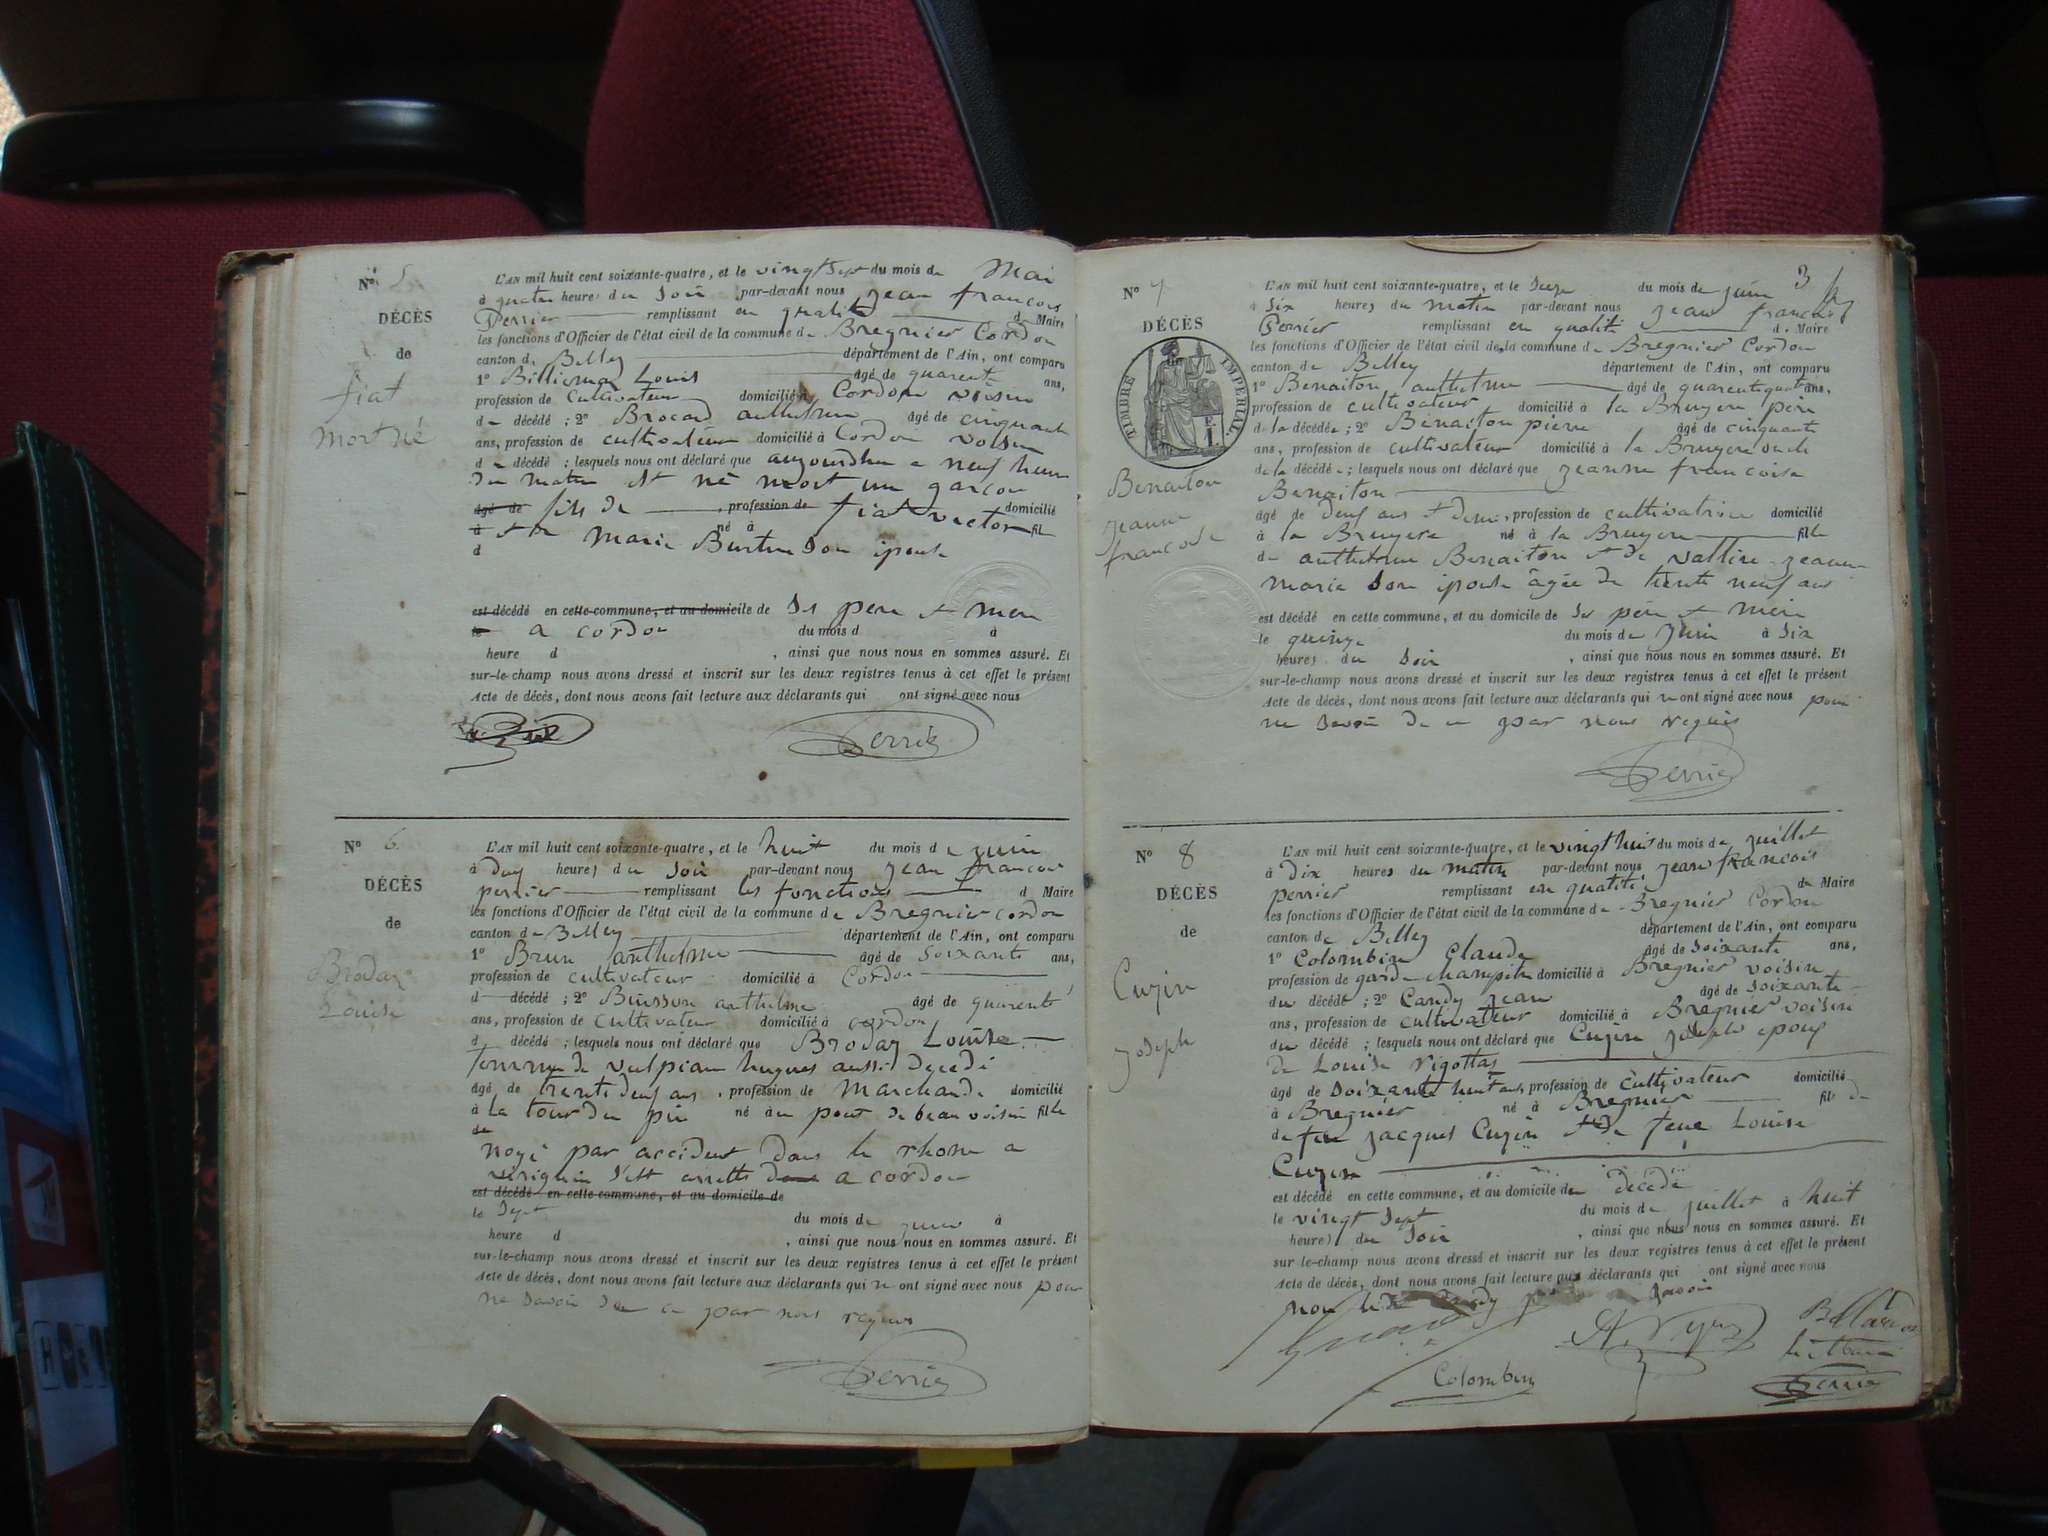 Nº 5
DÉCÈS
de
fiat
mort né
L'AN mil huit cent soixante-quatre, et le vingt sept du mois de Mai
à quatre heures du Soir par-devant nous jean francois
Perrier remplissant en qualité de Maire
les fonctions d'Officier de l'état civil de la commune de Bregnier Cordon
canton de Belley département de l'Ain, ont comparu
1º Louis âgé de quarente ans,
profession de Cultivateur domicilié à Cordon voisin
d décédé ; 2º Brocard anthelme âgé de cinquante
ans, profession de cultivateur domicilié à Cordon voisin
d décédé ; lesquels nous ont déclaré que aujourdhui a neuf heure
du matin est né mort un garcon
âgé de fils de , profession de fiat victor domicilié
à et de marie né à son épouse fil
d
est décédé en cette commune, et au domicile de Ses pere et mere
le a cordon du mois d à
heure d , ainsi que nous nous en sommes assuré. Et
sur-le-champ nous avons dressé et inscrit sur les deux registres tenus à cet effet le présent
Acte de décès, dont nous avons fait lecture aux déclarants qui ont signé avec nous
Perrier
Nº 6
DÉCÈS
de
Broday
Louise
L'AN mil huit cent soixante-quatre, et le huit du mois de juin
à heures du Soir par-devant nous jean francois
perrier remplissant les fonctions d Maire
les fonctions d'Officier de l'état civil de la commune de Bregnier cordon
canton de Belley département de l'Ain, ont comparu
1º Brun anthelme âgé de Soixante ans,
profession de cultivateur domicilié à Cordon
d décédé ; 2º Buisson anthelme âgé de quarente
ans, profession de cultivateur domicilié à cordon
d décédé ; lesquels nous ont déclaré que Broday Louise
femme de vulpian hugues aussi decedé
âgé de trente deuf ans , profession de Marchande domicilié
à la tour du pin né au pont de beauvoisin fille
de
noyé par accident dans le rhone a
S'est arretté a cordon
est décédé en cette commune, et au domicile de
le Sept du mois de juin à
heure d , ainsi que nous nous en sommes assuré. Et
sur-le-champ nous avons dressé et inscrit sur les deux registres tenus à cet effet le présent
Acte de décès, dont nous avons fait lecture aux déclarants qui n ont signé avec nous pour
ne Savoir de ce par nous requis
Perrier
3
Nº 7
DÉCÈS
TIMBRE IMPÉRIAL
Benaiton
jeanne
francoise
L'AN mil huit cent soixante-quatre, et le du mois de juin
à Six heures du matin par-devant nous jean francois
Perrier remplissant en qualité de Maire
les fonctions d'Officier de l'état civil de la commune de Bregnier Cordon
canton de Belley département de l'Ain, ont comparu
1º Benaiton anthelme âgé de quarentequatre ans,
profession de cultivateur domicilié à la Bruyere père
de la décédée ; 2º Benaiton pierre âgé de cinquante
ans, profession de cultivateur domicilié à la Bruyere oncle
de la décédée ; lesquels nous ont déclaré que jeanne francoise
Benaiton
âgé de deuf ans et demi , profession de cultivatrice domicilié
à la Bruyere né à la Bruyere fille
de anthelme Benaiton et de vallin jeanne
marie Son épouse âgée de trente neuf ans
est décédé en cette commune, et au domicile de Ses père et mère
le quinze du mois de juin à Six
heures du Soir , ainsi que nous nous en sommes assuré. Et
sur-le-champ nous avons dressé et inscrit sur les deux registres tenus à cet effet le présent
Acte de décès, dont nous avons fait lecture aux déclarants qui n ont signé avec nous pour
ne Savoir de ce par nous requis
Perrier
Nº 8
DÉCÈS
de
Cuzin
joseph
L'AN mil huit cent soixante-quatre, et le vingt huit du mois de juillet
à dix heures du matin par-devant nous jean francois
perrier remplissant en qualité de Maire
les fonctions d'Officier de l'état civil de la commune de Bregnier Cordon
canton de Belley département de l'Ain, ont comparu
1º Colombin Claude âgé de soixante ans,
profession de garde champêtre domicilié à Bregnier voisin
du décédé ; 2º Candy jean âgé de soixante
ans, profession de cultivateur domicilié à Bregnier voisin
du décédé ; lesquels nous ont déclaré que Cuzin joseph epouf
de Louise rigottas
âgé de Soixante huit ans, profession de Cultivateur domicilié
à Bregnier né à Bregnier fils de
de feu jacques Cuzin et de feue Louise
Cuzin
est décédé en cette commune, et au domicile du décédé
le vingt Sept du mois de juillet à huit
heures du Soir , ainsi que nous nous en sommes assuré. Et
sur-le-champ nous avons dressé et inscrit sur les deux registres tenus à cet effet le présent
Acte de décès, dont nous avons fait lecture aux déclarants qui ont signé avec nous
non ledit Candy pour Savoir
Colombin
Perrier